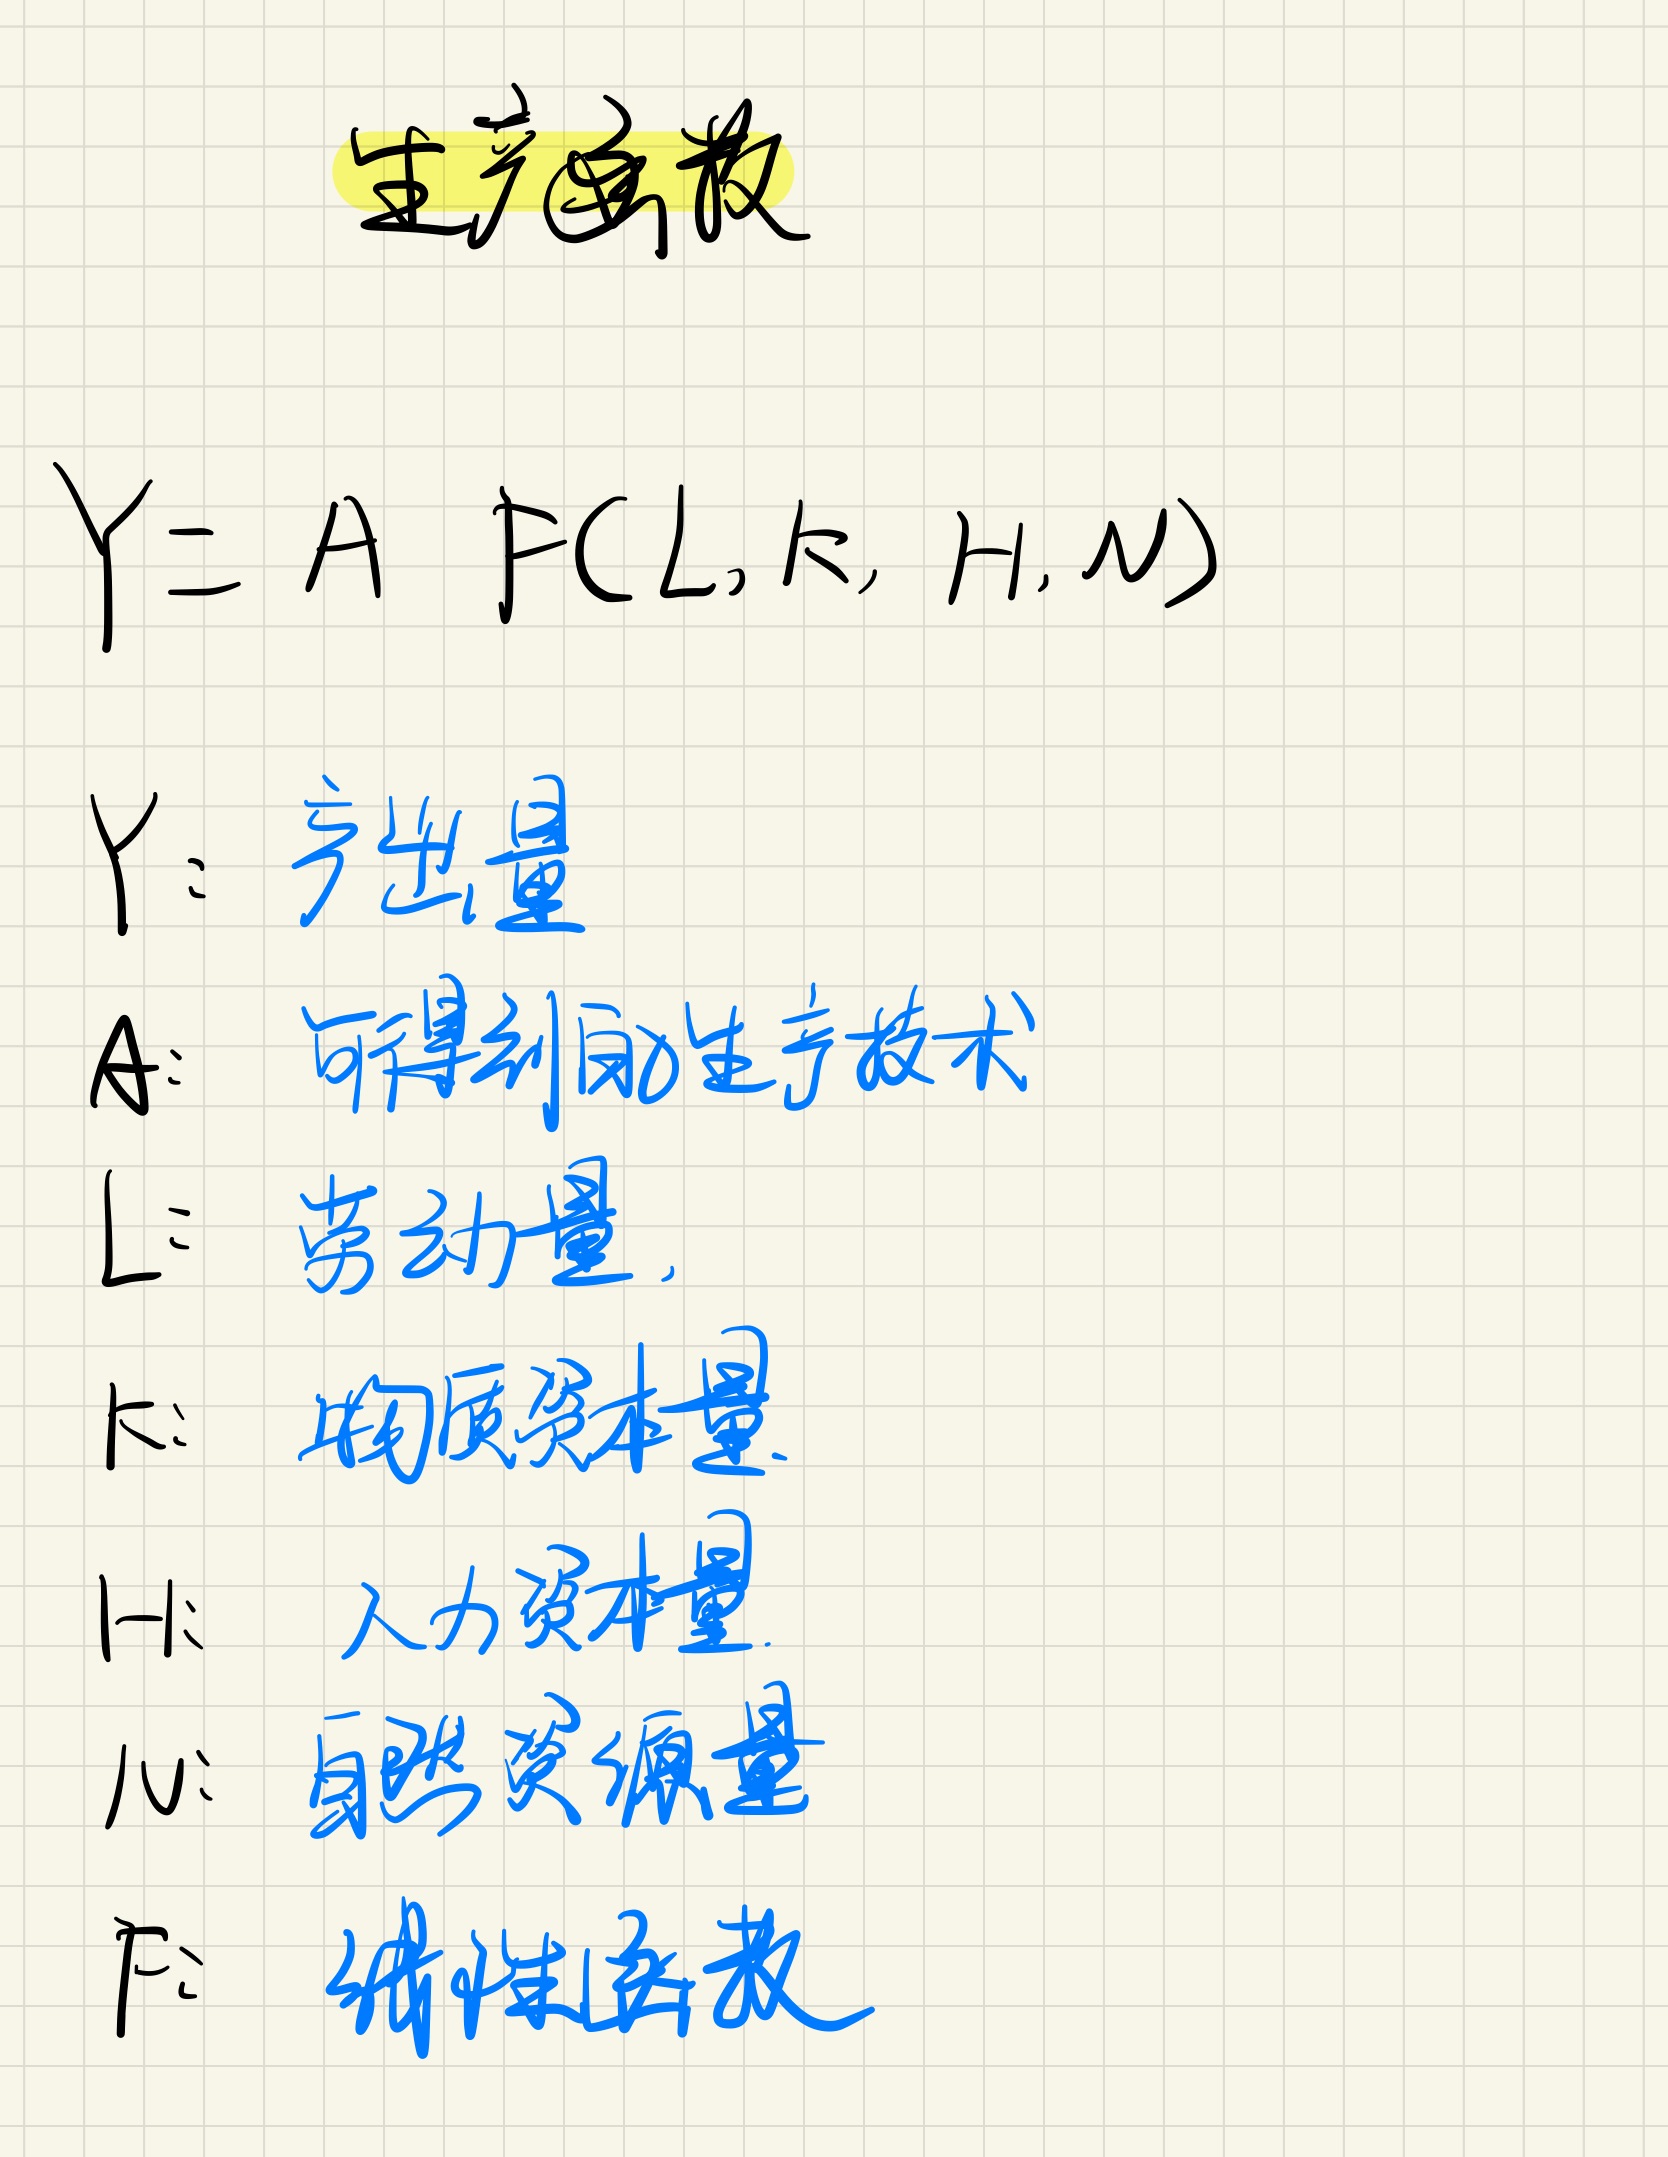 生产函数
Y= A F(L, K, H, N)
Y: 产出量
A: 可得到的生产技术
L: 劳动量.
K: 物质资本量.
H: 人力资本量.
N: 自然资源量
F: 线性函数